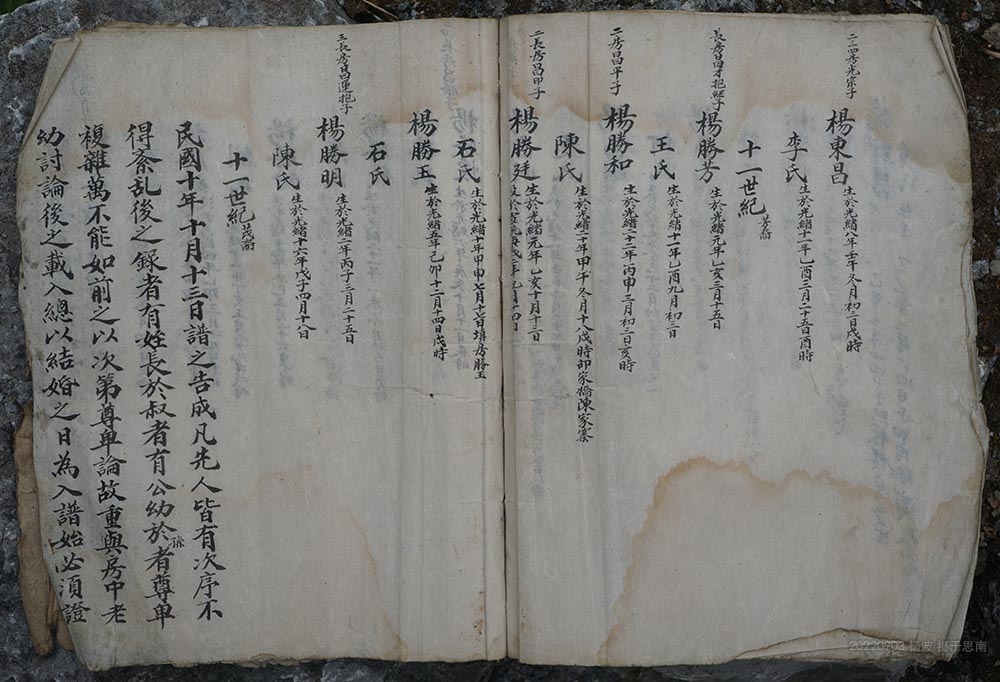 二二四房光宗子
楊東昌 生於光緒八年壬午冬月初二日戌時
李氏 生於光緒十一年乙酉三月二十五日酉時
十一世紀 芳裔
長房昌才抱繼子
楊勝芳 生於光緒元年乙亥三月十五日
王氏 生於光緒十一年乙酉九月初三日
二房昌平子
楊勝和 生於光緒二十二年丙申三月初三日亥時
陳氏 生於光緒二十年甲午冬月十八戌時卯家橋陳家寨
二長房昌甲子
楊勝廷 生於光緒元年乙亥十月十三日
石氏 生於光緒十年甲申七月十七日填房勝玉
楊勝玉 生於光緒五年己卯十二月十四日戌時
石氏
三長房昌運抱子
楊勝明 生於光緒二年丙子三月二十五日
陳氏 生於光緒十六年戊子四月十八日
十一世紀 茂裔
民國十年十月十三日譜之告成凡先人皆有次序不
得紊乱後之錄者有姪長於叔者有公幼於孫者尊卑
複雜萬不能如前之以次第尊卑論故重與房中老
幼討論後之載入總以結婚之日為入譜始必須證
20220703 楊波 摄于思南